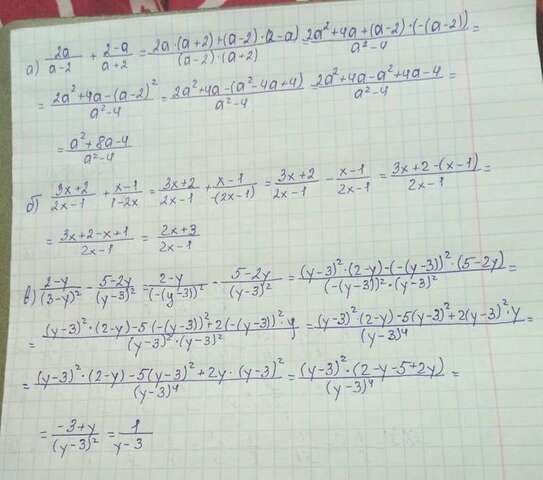 а) 2a/(a-2) + (2-a)/(a+2) = (2a·(a+2)+(a-2)·(2-a))/((a-2)·(a+2)) = (2a²+4a+(a-2)·(-(a-2)))/(a²-4) =
= (2a²+4a-(a-2)²)/(a²-4) = (2a²+4a-(a²-4a+4))/(a²-4) = (2a²+4a-a²+4a-4)/(a²-4) =
= (a²+8a-4)/(a²-4)
б) (3x+2)/(2x-1) + (x-1)/(1-2x) = (3x+2)/(2x-1) + (x-1)/(-(2x-1)) = (3x+2)/(2x-1) - (x-1)/(2x-1) = (3x+2-(x-1))/(2x-1) =
= (3x+2-x+1)/(2x-1) = (2x+3)/(2x-1)
в) (2-y)/(3-y)² - (5-2y)/(y-3)² = (2-y)/(-(y-3))² - (5-2y)/(y-3)² = ((y-3)²·(2-y)-(-(y-3))²·(5-2y))/((-(y-3))²·(y-3)²) =
= ((y-3)²·(2-y)-5(-(y-3))²+2(-(y-3))²·y)/((y-3)²·(y-3)²) = ((y-3)²·(2-y)-5(y-3)²+2(y-3)²·y)/(y-3)⁴ =
= ((y-3)²·(2-y)-5(y-3)²+2y·(y-3)²)/(y-3)⁴ = ((y-3)²·(2-y-5+2y))/(y-3)⁴ =
= (-3+y)/(y-3)² = 1/(y-3)